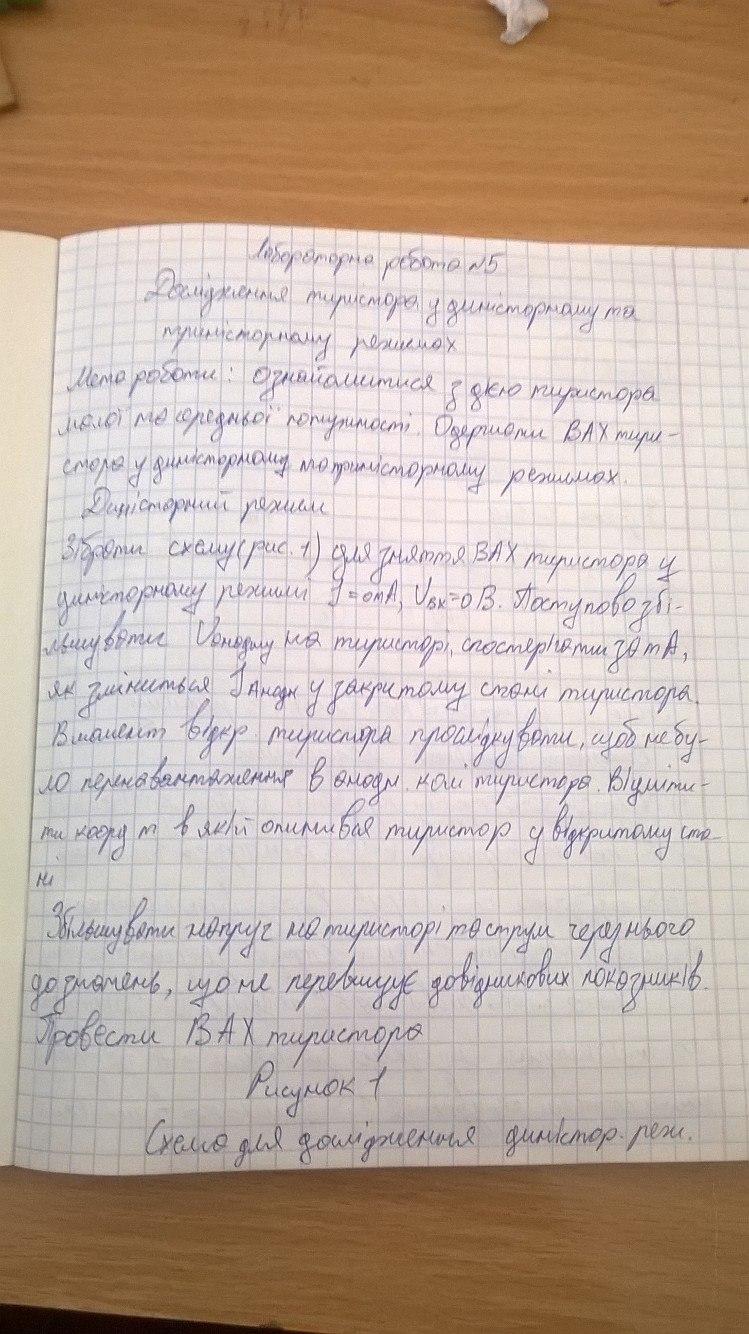 Лабораторна робота №5
Дослідження тиристора у диністорному та
триністорному режимах
Мета роботи: Ознайомитися з дією тиристора
малої та середньої потужності. Одержати ВАХ тири-
стора у диністорному та триністорному режимах.
Диністорний режим
Зібрати схему (рис. 1) для зняття ВАХ тиристора у
диністорному режимі I=0mA, Uвх=0В. Поступово збі-
льшувати Uанодну на тиристорі, спостерігати за mA,
як зміниться IАнодн у закритому стані тиристора.
В момент відкр. тиристора прослідкувати, щоб не бу-
ло перенавантаження в анодн. колі тиристора. Відміти-
ти коорд т в якій опинився тиристор у відкритому ста-
ні
Збільшувати напруг на тиристорі та струм через нього
до значень, що не перевищує довідникових показників.
Провести ВАХ тиристора
Рисунок 1
Схема для дослідження диністор. реж.